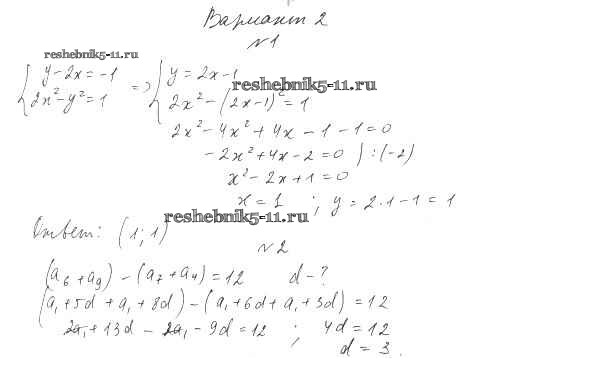 Вариант 2
№1
reshebnik5-11.ru
{ y - 2x = -1 => { y = 2x - 1
2x² - y² = 1 2x² - (2x - 1)² = 1
reshebnik5-11.ru
2x² - 4x² + 4x - 1 - 1 = 0
- 2x² + 4x - 2 = 0 ) : (-2)
x² - 2x + 1 = 0
x = 1 ; y = 2·1 - 1 = 1
reshebnik5-11.ru
Ответ: (1; 1)
№2
(a₆ + a₉) - (a₇ + a₄) = 12 d - ?
(a₁ + 5d + a₁ + 8d) - (a₁ + 6d + a₁ + 3d) = 12
2a₁ + 13d - 2a₁ - 9d = 12 ; 4d = 12
d = 3.